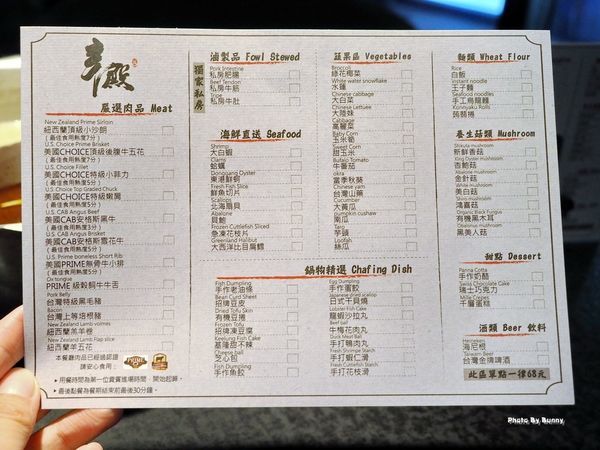 辛殿
嚴選肉品 Meat
New Zealand Prime Sirloin
紐西蘭頂級小沙朗
(最佳食用熟度7分)
U.S. Choice Prime Brisket
美國CHOICE頂級後腹牛五花
(最佳食用熟度7分)
U.S. Choice Fillet
美國CHOICE特級小菲力
(最佳食用熟度5分)
U.S. Choice Top Graded Chuck
美國CHOICE特級嫩肩
(最佳食用熟度5分)
U.S. CAB Angus Beef
美國CAB安格斯黑牛
(最佳食用熟度7分)
U.S. CAB Angus Brisket
美國CAB安格斯雪花牛
(最佳食用熟度5分)
U.S. Prime boneless Short Rib
美國PRIME無骨牛小排
(最佳食用熟度7分)
Ox tongue
PRIME級穀飼牛牛舌
Pork Belly
台灣特級黑毛豬
Bacon
台灣上等培根豬
New Zealand Lamb volmes
紐西蘭羔羊卷
New Zealand Lamb Flap slice
紐西蘭羊五花
本餐廳肉品已經過認證
請安心食用:
•用餐時間為第一位貴賓進場時間,開始起算。
•最後點餐為餐期結束前最後30分鐘。
滷製品 Fowl Stewed
獨家私房
Pork Intestine
私房肥腸
Beef Tendon
私房牛筋
Tripe
私房牛肚
海鮮直送 Seafood
Shrimp
大白蝦
Clams
蛤蠣
Donggang Oyster
東港鮮蚵
Fresh Fish Slice
鮮魚切片
Scallops
北海扇貝
Abalone
貝鮑
Frozen Cuttlefish Sliced
急凍花枝片
Greenland Halibut
大西洋比目扁鱈
蔬果區 Vegetables
Broccoli
綠花椰菜
White water snowflake
水蓮
Chinese cabbage
大白菜
Chinese Lettuce
大陸妹
Cabbage
高麗菜
Baby Corn
玉米筍
Sweet Corn
甜玉米
Bufalo Tomato
牛番茄
okra
當季秋葵
Chinese yam
台灣山藥
Cucumber
大黃瓜
pumpkin cushaw
南瓜
Taro
芋頭
Loofah
絲瓜
鍋物精選 Chafing Dish
Fish Dumpling
手作老油條
Bean Curd Sheet
招牌豆皮
Dried Tofu Skin
有機豆腐
Frozen Tofu
招牌凍豆腐
Keelung Fish Cake
基隆甜不辣
Cheese ball
芝心包
Fish Dumpling
手作魚餃
Egg Dumpling
手作蛋餃
Japanese dried scallop
日式干貝燒
Lobster Fish Cake
龍蝦沙拉丸
Beef ball
牛梅花肉丸
Duck Meat Ball
手打鴨肉丸
Fresh Shrimp Starch
手打蝦仁滑
Fresh Cuttlefish Starch
手打花枝滑
麵類 Wheat Flour
Rice
白飯
Instant noodle
王子麵
Seafood noodles
手工烏龍麵
Konnyaku Rolls
蒟蒻捲
養生菇類 Mushroom
Shiitake mushroom
新鮮香菇
King Oyster mushroom
杏鮑菇
Abalone mushroom
金針菇
White mushroom
美白菇
Shimi mushroom
鴻喜菇
Organic Black Fungus
有機黑木耳
Oblonde mushroom
黑美人菇
甜點 Dessert
Panna Cotta
手作奶酪
Swiss Chocolate Cake
瑞士巧克力
Mille Crepes
手層蛋糕
酒類 Beer 飲料
Heineken
海尼根
Taiwan Beer
台灣金牌啤酒
此區單點一律68元
Photo By Bunny